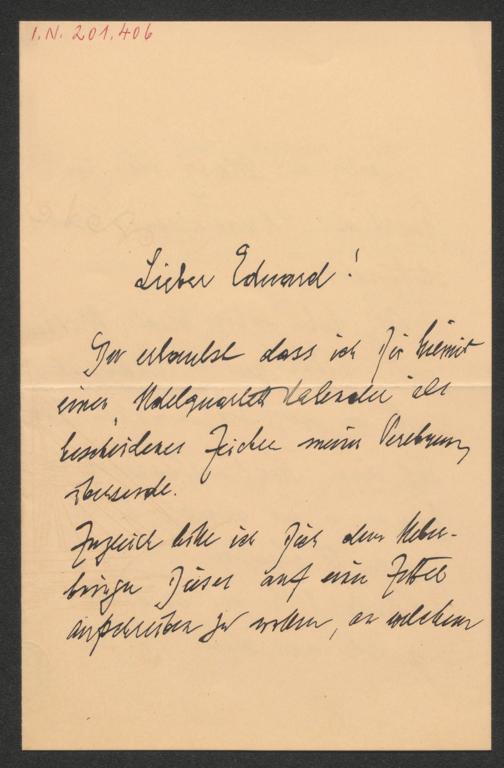 I.N. 201.406
Lieber Eduard!
Du erlaubst dass ich Dir hiemit
einen "Udelquartett Kalender" als
bescheidenes Zeichen meiner Verehrung
übersende.
Zugleich bitte ich Dich dem Ueber-
bringer Dieses auf ein Zettel
aufschreiben zu wollen, an welchem